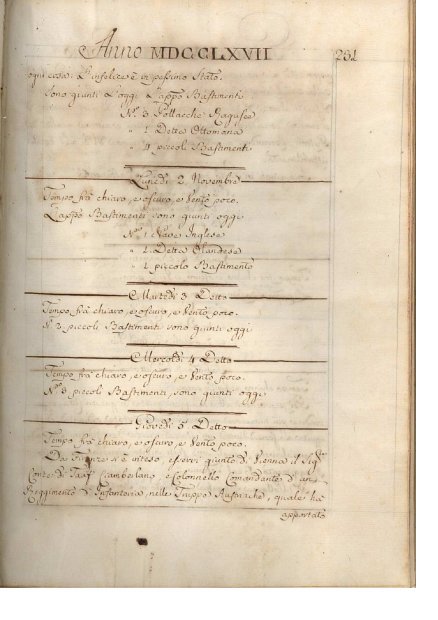 Anno MDCCLXVII 251
ogni cosa. L'infelice è in pessimo Stato.
Sono giunti d'oggi L'app̃o Bastimenti
N.º 3 Pollacche Ragusee
" 1 Detta Ottomana
" 9 piccoli Bastimenti
Lunedì 2 Novembre
Tempo frà chiaro, e oscuro, e Vento poco.
L'app̃o Bastimenti sono giunti oggi
N.º 1 Nave Inglese
" 2 Dette Olandese
" 1 piccolo Bastimento
Martedì 3 Detto
Tempo frà chiaro, e oscuro, e Vento poco.
N.º 2 piccoli Bastimenti sono giunti oggi
Mercoldì 4 Detto
Tempo frà chiaro, e oscuro, e Vento poco.
N.º 3 piccoli Bastimenti, sono giunti oggi
Giovedì 5 Detto
Tempo frà chiaro, e oscuro, e Vento poco.
Da Firenze si è inteso esservi giunto di Vienna il Sig.
Conte di Ciambelano, e Colonnello Comandante d'un
Reggimento d'Infanteria nelle Truppe Austriache, quale hà
apportato